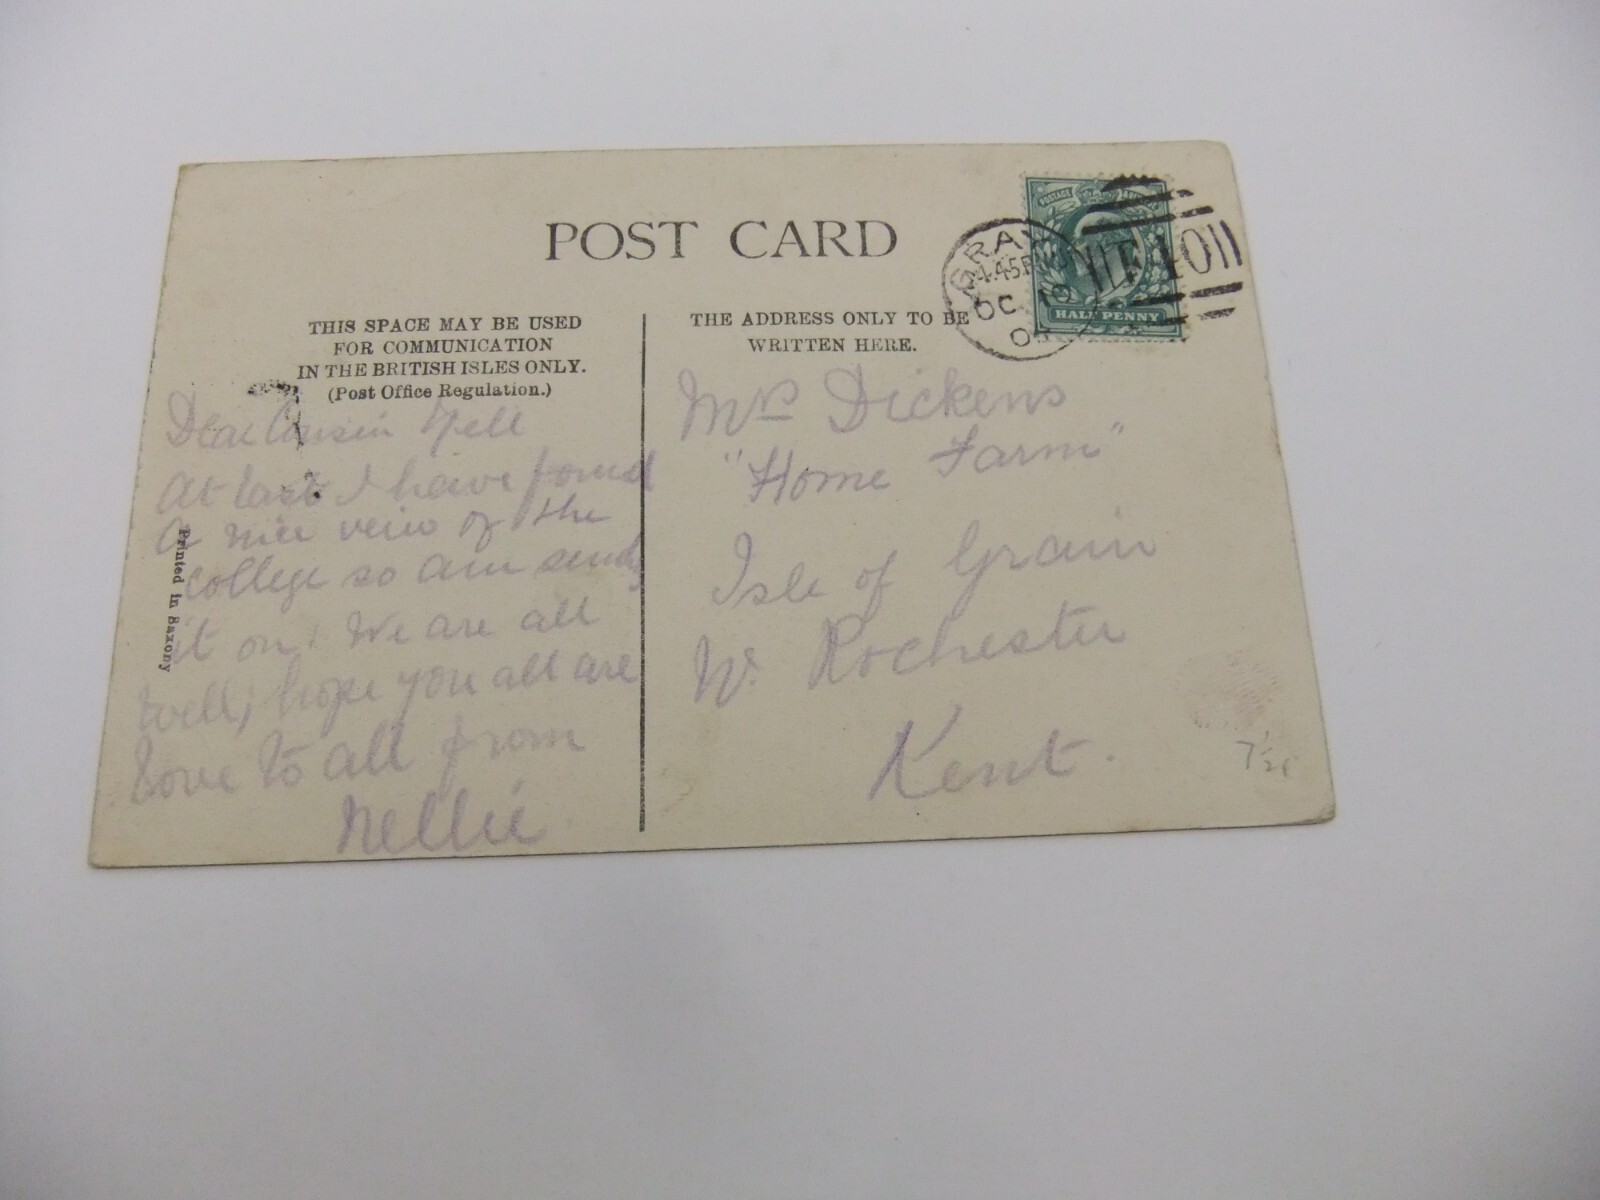 POST CARD
THIS SPACE MAY BE USED
FOR COMMUNICATION
IN THE BRITISH ISLES ONLY.
(Post Office Regulation.)
Dear Cousin Nell
At last I have found
a nice veiw of the
college so am sendg
it on. We are all
well, hope you all are
Love to all from
Nellie
Printed in Saxony
THE ADDRESS ONLY TO BE
WRITTEN HERE.
Mrs Dickens
"Home Farm"
Isle of Grain
Nr Rochester
Kent.
GRA
4.45 PM
OC 19
HALF PENNY
7½